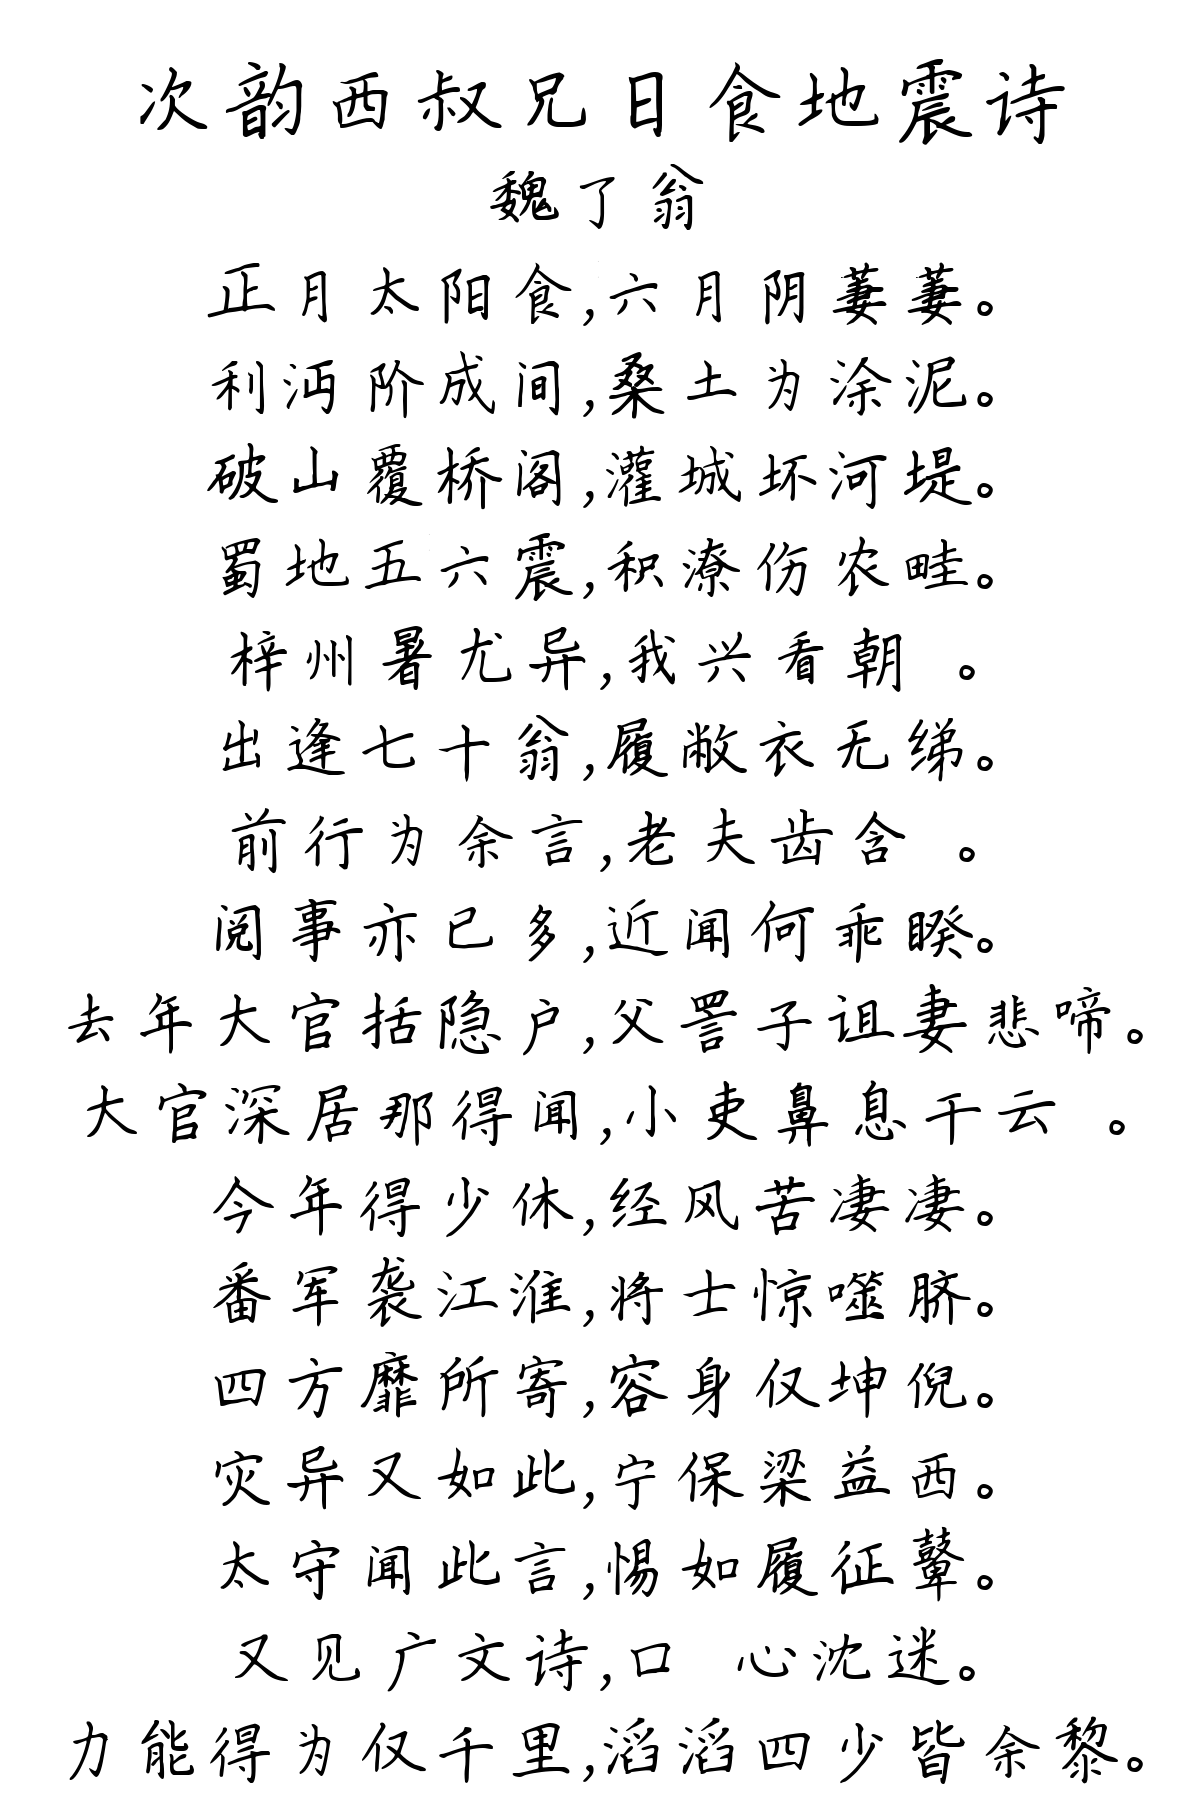 次韵西叔兄日食地震诗
魏了翁
正月太阳食,六月阴萋萋。
利沔阶成间,桑土为涂泥。
破山覆桥阁,灌城坏河堤。
蜀地五六震,积潦伤农畦。
梓州暑尤异,我兴看朝 。
出逢七十翁,履敝衣无绨。
前行为余言,老夫齿含 。
阅事亦已多,近闻何乖睽。
去年大官括隐户,父詈子诅妻悲啼。
大官深居那得闻,小吏鼻息干云 。
今年得少休,经风苦凄凄。
番军袭江淮,将士惊噬脐。
四方靡所寄,容身仅坤倪。
灾异又如此,宁保梁益西。
太守闻此言,惕如履征鼙。
又见广文诗,口 心沈迷。
力能得为仅千里,滔滔四少皆余黎。